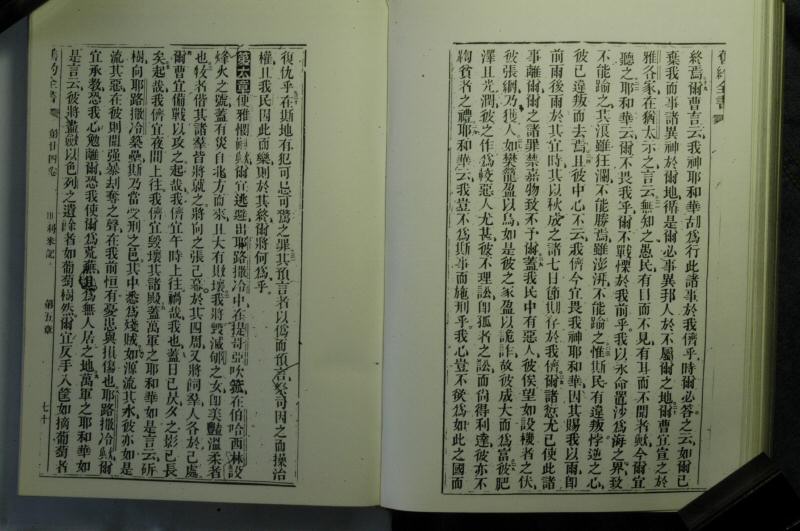 舊約全書
終焉爾曹言云我神耶和華胡爲行此諸事於我儕乎時爾必答之云如爾已
棄我而事諸異神於爾地循是爾必事異邦人於不屬爾之地爾曹宜宣之於
雅各家在猶太示之言云無知之愚民有目而不見有耳而不聞者歟今爾宜
聽之耶和華云爾不畏我乎爾不戰慄於我前乎我以永命置沙爲海之界致
不能踰之其浪雖狂瀾不能勝焉雖澎湃不能踰之惟斯民有違叛悖逆之心
彼已違叛而去焉且彼中心不云我儕今宜畏我神耶和華因其賜我以雨卽
前雨後雨於其宜時其以秋成之諸七日節期存於我儕爾諸愆尤已使此諸
事離爾爾之諸罪禁嘉物致不予爾蓋我民中有惡人彼俟望如設機者之伏
彼張網乃獲人如樊籠盈以鳥如是彼之家盈以詭詐故彼成大而爲富彼肥
澤且光潤彼之作爲較惡人尤甚彼不理訟卽孤者之訟而尙得利達彼亦不
鞫貧者之禮耶和華云我豈不爲斯事而施刑乎我心豈不欲爲如此之國而
復仇乎在斯地有犯可忌可驚之罪其預言者以僞而預言祭司因之而操治
權且我民因此而樂則於其終爾將何爲乎
第六章 便雅憫歟爾宜逃遯出耶路撒冷中在提哥亞吹箛在伯哈西林設
烽火之號蓋有災自北方而來且大有敗壞我將毀滅郇之女卽美豔溫柔者
也牧者偕其諸羣皆就之將向之張己幕於其四周又將飼羣人各於己處
爾曹宜備戰以攻之起哉我儕宜午時上往禍哉我也蓋日已昃夕之影已長
矣起哉我儕宜夜間上往我儕宜毀壞其諸殿蓋萬軍之耶和華如是言云斫
樹向耶路撒冷築壘斯乃當受刑之邑其中悉爲殘賊如源流其水彼亦如是
流其惡在彼則聞强暴刦奪之聲在我前恒有憂患與損傷也耶路撒冷歟爾
宜承敎恐我心勉離爾恐我使爾爲荒蕪且爲無人居之地萬軍之耶和華如
是言云彼將盡斂以色列之遺餘者如葡萄樹然爾宜反手入筐如摘葡萄者
舊約全書 第廿四卷 耶利米記 第五章 七十